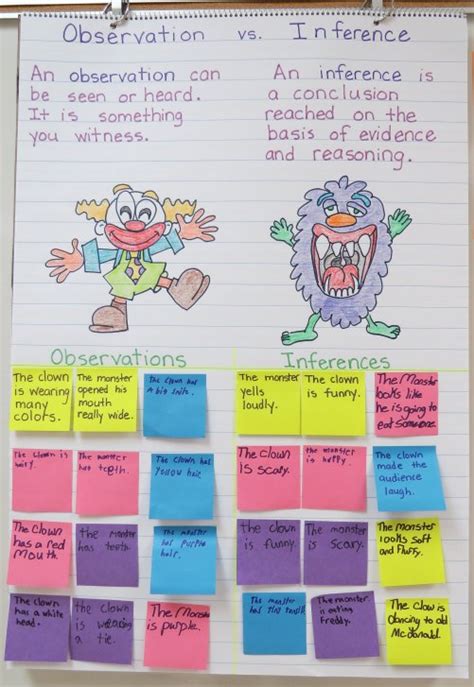 Observation vs. Inference
An observation can
be seen or heard.
It is something
you witness.
An inference is
a conclusion
reached on the
basis of evidence
and reasoning.
Observations
Inferences
The clown
is wearing
many
colors.
The monster
opened his
mouth
really wide.
The clown has
a big
The monster
yells
loudly.
The clown
is funny.
The Monster
looks like
he is going to
eat someone.
The clown is
The monster
has teeth.
The clown has
yellow hair.
The clown
is scary.
the monster
is happy.
The clown
made the
audience
laugh.
The clown
has a red
mouth.
the monster
has teeth
The monster
has purple
hair.
the clown
is funny.
The monster
is scary.
The monster
looks soft
and fluffy.
The clown
has a white
head.
the clown
is wearing
a tie.
The Monster
is purple.
The monster
has
The monster
is eating
Freddy.
The clow is
dancing to old
McDonald.